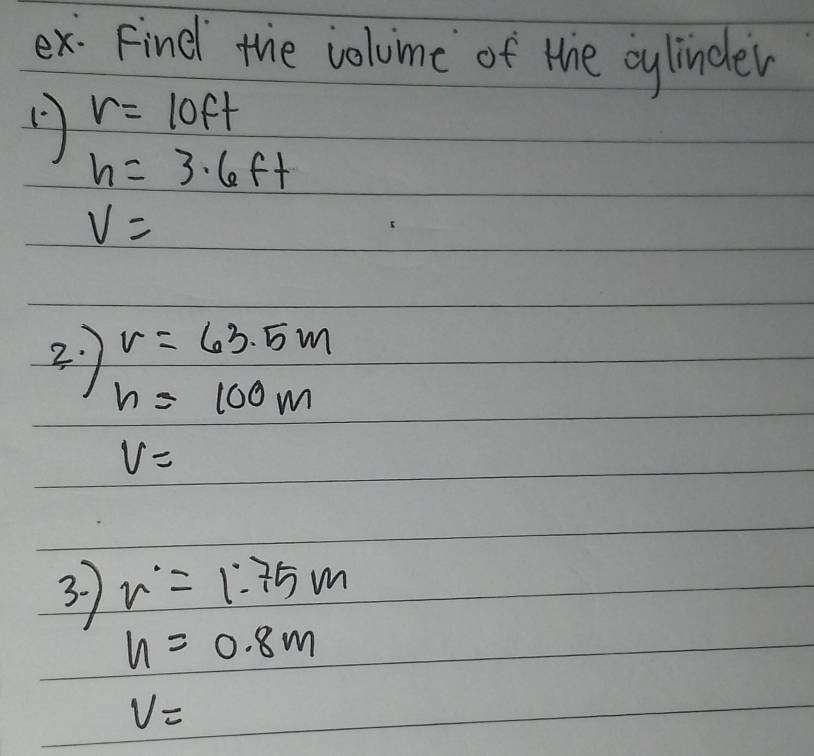 ex. Find the volume of the cylinder
1.) r = 10ft
h = 3.6ft
V =
2.) r = 63.5m
h = 100m
V =
3.) r = 1.75m
h = 0.8m
V =